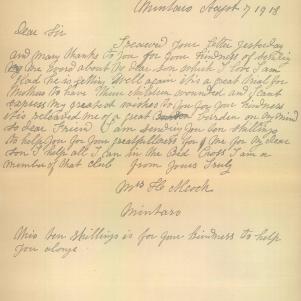 Mintaro August 7 1918
Dear Sir
I received your letter yesterday
and many thanks to you for your kindness of sending
me word about my dear son which I love I am
glad he is getting well again it is a great trial for
Mothers to have there children wounded and I cant
express my greatest wishes to you for your kindness
it is released me of a great burden on my mind
so dear Friend I am sending you ten shillings
to help you for your greatfullness to me for my dear
son I help all I can in the Red Cross I am a
member of that club from yours Truly
Mrs H
Mintaro
this ten shillings is for your kindness to help
you alonge